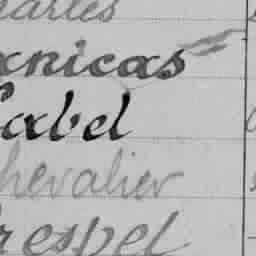 harles
xnicas
Cabel
hevalier
respel